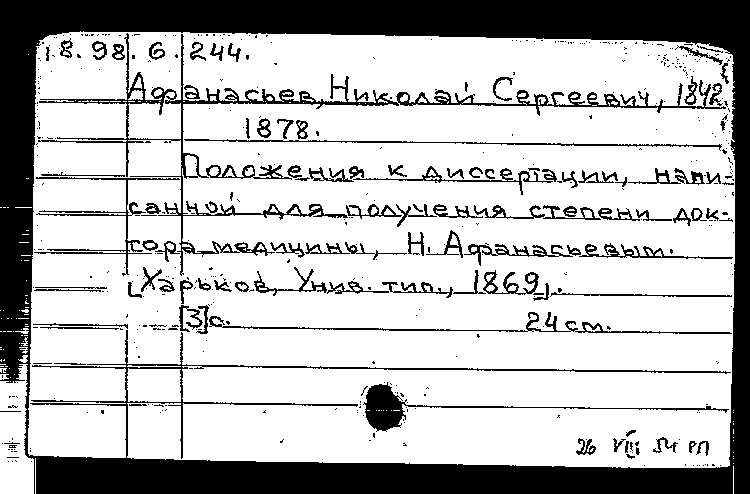 18.98.6.244.
Афанасьев, Николай Сергеевич, 1842
1878.
Положения к диссертации, напи-
санной для получения степени док-
тора медицины, Н. Афанасьевым.
[Харьков, Унив. тип., 1869].
[3]с. 24 см.
26 VIII 54 РП